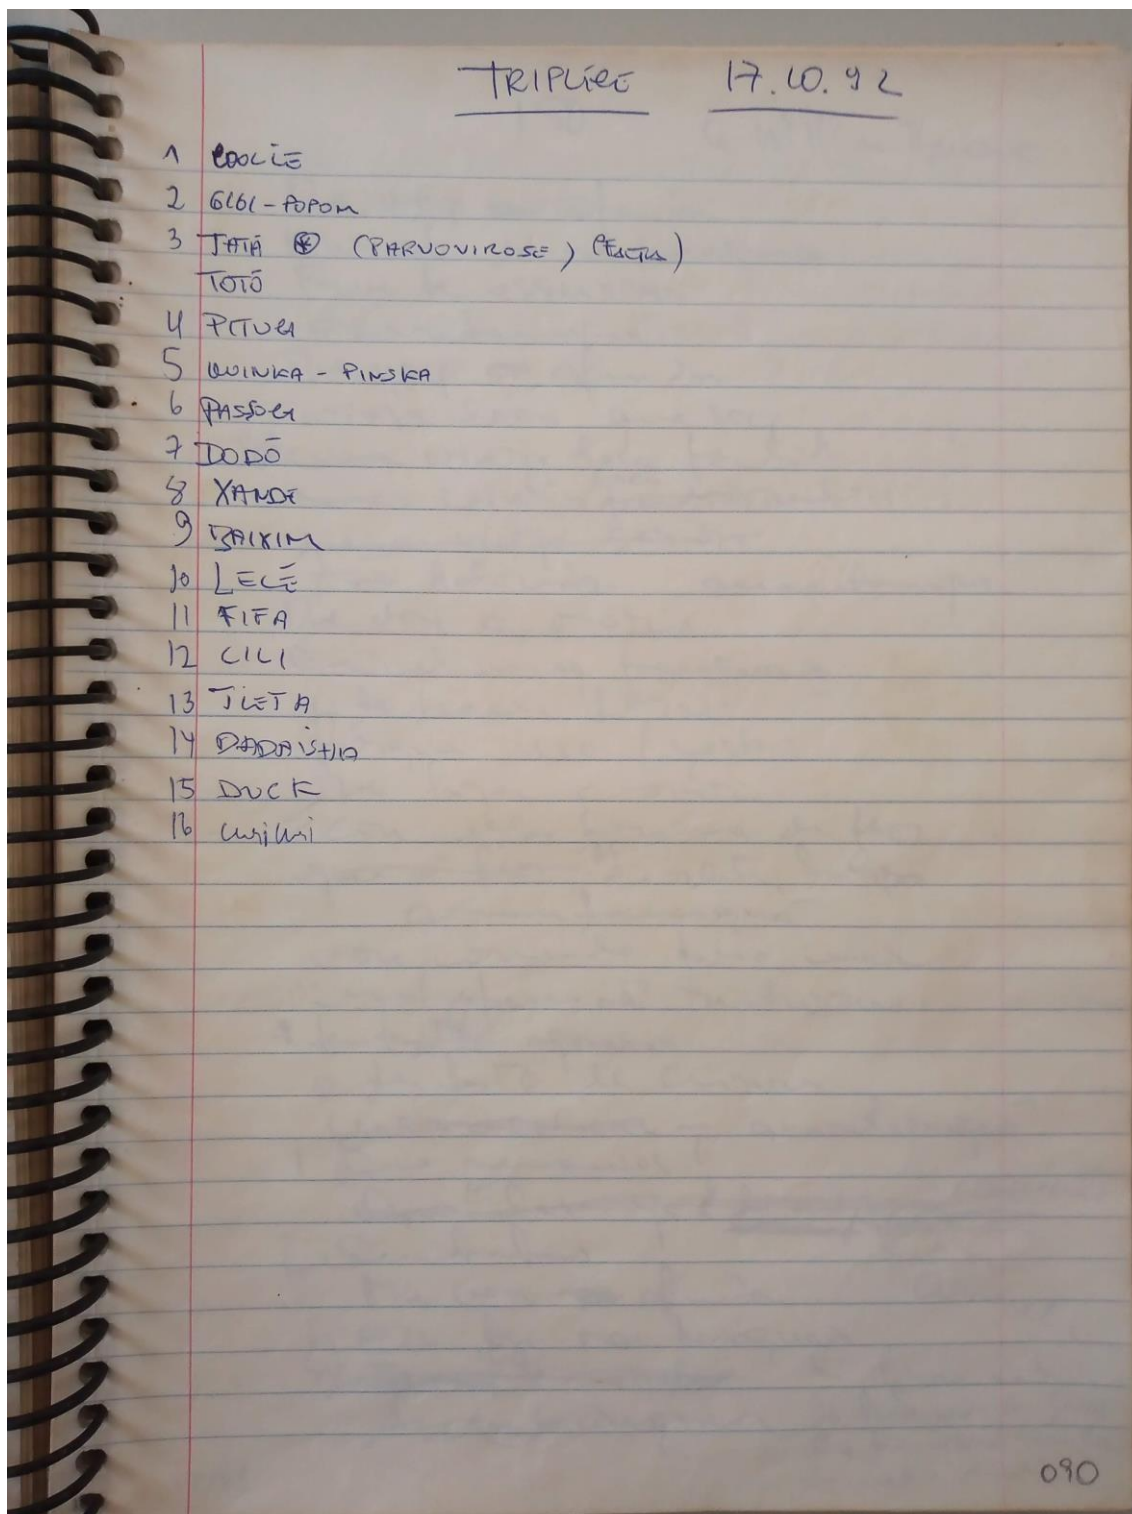 TRIPLICE 17.10.92
1 COOLIE
2 GIGI - POPOM
3 TATÁ (PARVOVIROSE)
TOTÓ
4 PITUCA
5 QUINKA - PINSKA
6 PASSOCA
7 DODÓ
8 XANDE
9 BAIXIM
10 LELÉ
11 FIFA
12 CILI
13 TIETA
14 DADAISTA
15 DUCK
16 Curicuri
090